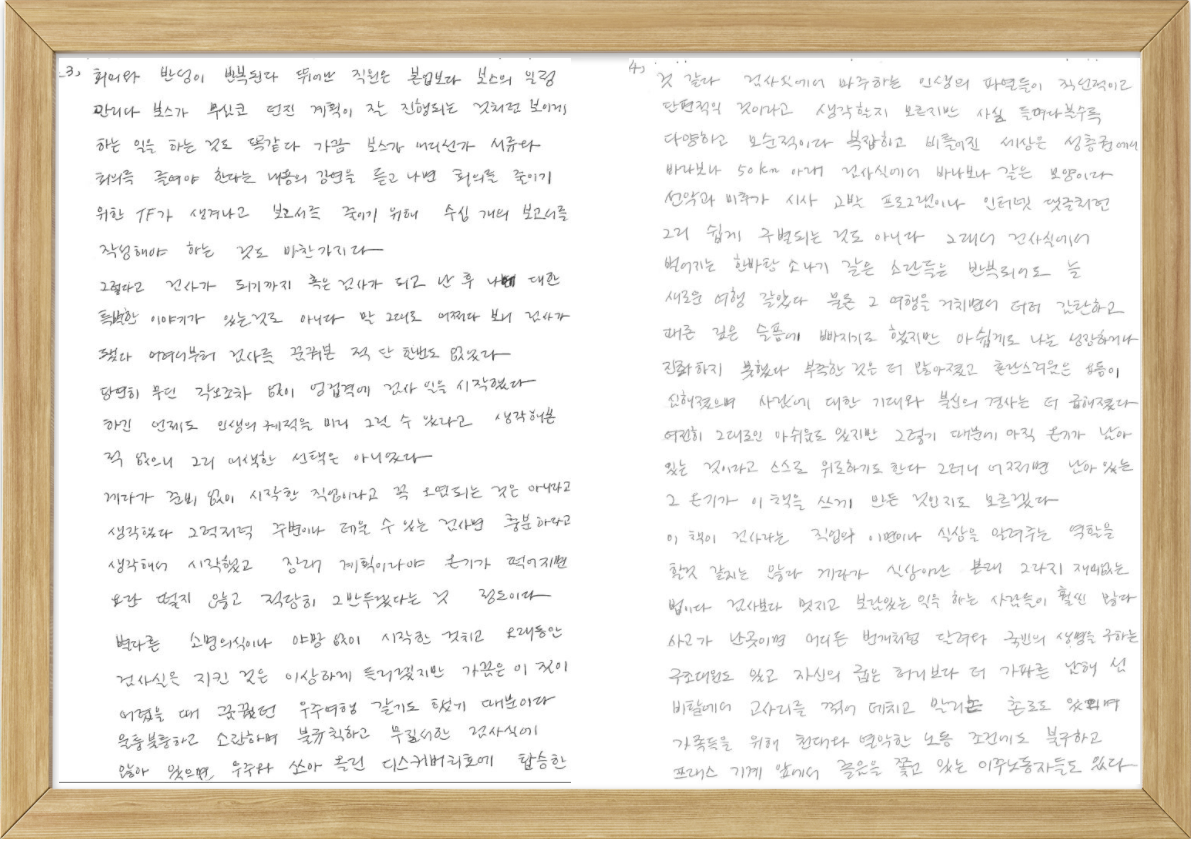 3,
회의와 반성이 반복된다 뛰어난 직원은 본업보다 보스의 일정
만라다 보스가 무심코 던진 계획이 잘 진행되는 것처럼 보이게
하는 일을 하는 것도 똑같다 가끔 보스가 어디선가 서류와
회의를 줄여야 한다는 내용의 강연을 듣고 나면 회의를 줄이기
위한 TF가 생겨나고 보고서를 줄이기 위해 수십 개의 보고서를
작성해야 하는 것도 마찬가지다
그렇다고 검사가 되기까지 혹은 검사가 되고 난 후 대한
특별한 이야기가 있는것도 아니다 말 그대로 어쩌다 보니 검사가
됐다 어려서부터 검사를 꿈꿔본 적 단 한번도 없었다
당연히 무던 각오조차 없이 엉겁결에 검사 일을 시작했다
하긴 언제도 인생의 궤적을 미리 그릴 수 있다고 생각해본
적 없으니 그리 어색한 선택은 아니었다
게다가 준비 없이 시작한 직업이라고 꼭 오염되는 것은 아니라고
생각했다 그럭저럭 주변이나 데울 수 있는 검사면 충분하다고
생각해서 시작했고 장래 계획이라야 온기가 떨어지면
요란 떨지 않고 적당히 그만두겠다는 것 정도이다
별다른 소명의식이나 야망 없이 시작한 것치고 오래동안
검사실은 지킨 것은 이상하게 들리겠지만 가끔은 이 것이
어렸을 때 꿈꿨던 우주여행 같기도 했기 때문이다
울퉁불퉁하고 소란하며 불규칙하고 무질서한 검사실에
앉아 있으면, 우주와 쏘아 올린 디스커버리호에 탑승한
4)
것 같다 검사실에서 마주하는 인생의 파편들이 직선적이고
단편적인 것이라고 생각할지 모르지만 사실 들여다볼수록
다양하고 모순적이다 복잡하고 비틀어진 세상은 성층권에서
바라보나 50km 아래 검사실에서 바라보나 같은 모양이다
선악과 미추가 시사 고발 프로그램이나 인터넷 댓글처럼
그리 쉽게 구별되는 것도 아니다 그래서 검사실에서
벌어지는 한바탕 소나기 같은 소란들은 반복되어도 늘
새로운 여행 같았다 물론 그 여행을 거치면서 더러 감탄하고
때론 깊은 슬픔에 빠지기도 했지만 아쉽게도 나는 성장하거나
진화하지 못했다 부족한 것은 더 많아졌고 혼란스러움은 요동이
심해졌으며 사람에 대한 기대와 불신의 경사는 더 급해졌다
여전히 그대로인 아쉬움도 있지만 그렇기 때문에 아직 온기가 남아
있는 것이라고 스스로 위로하기도 한다 그러니 어쩌면 남아 있는
그 온기가 이 책을 쓰게 만든 것인지도 모르겠다
이 책이 검사라는 직업의 이면이나 실상을 알려주는 역할을
할것 같지는 않다 게다가 실상이란 본래 그다지 재미없는
법이다 검사보다 멋지고 보람있는 일을 하는 사람들이 훨씬 많다
사고가 난곳이면 어디든 번개처럼 달려와 국민의 생명을 구하는
구조대원도 있고 자신의 굽은 허리보다 더 가파른 남해 섬
비탈에서 고사리를 꺾어 데치고 말리는 촌로도 있으며
가족들을 위해 천대와 열악한 노동 조건에도 불구하고
프레스 기계 앞에서 졸음을 쫓고 있는 이주노동자들도 있다